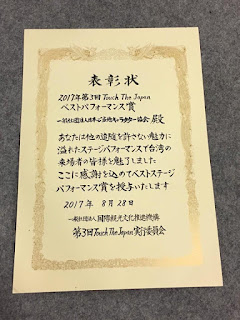 表彰状
2017年第3回Touch The Japan
ベストパフォーマンス賞
一般社団法人日本ご当地キャラクター協会 殿
あなたは他の追随を許さない魅力に
溢れたステージパフォーマンスで台湾の
来場者の皆様を魅了しました
ここに感謝を込めてベストステージ
パフォーマンス賞を授与いたします
2017年 8月28日
一般社団法人 国際観光文化推進機構
第3回Touch The Japan実行委員会